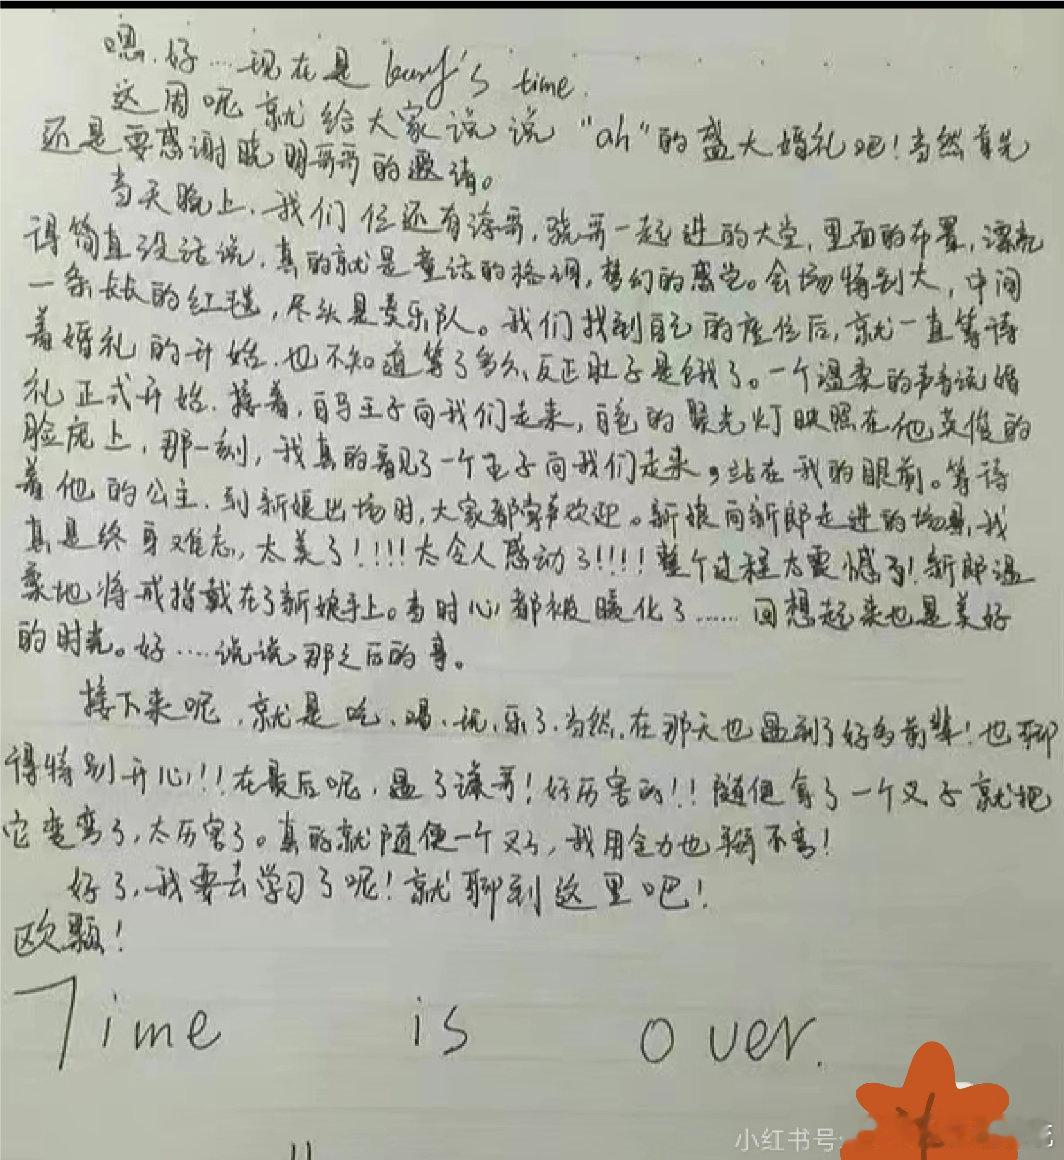 嗯.好……现在是 's time.
这周呢就给大家说说"ah"的盛大婚礼吧!当然首先
还是要感谢晓明哥哥的邀请。
当天晚上.我们 还有涛哥,骁哥一起进的大堂,里面的布置,漂亮
得简直没话说.真的就是童话的格调,梦幻的感觉。会场特别大,中间
一条长长的红毯,尽头是奏乐队。我们找到自己的座位后,就一直等待
着婚礼的开始.也不知道等了多久,反正肚子是饿了。一个温柔的声音说婚
礼正式开始.接着,白马王子向我们走来,白色的聚光灯映照在他英俊的
脸庞上,那一刻,我真的看见了一个王子向我们走来,站在我的眼前。等待
着他的公主.到新娘出场时,大家都掌声欢迎。新娘向新郎走进的场景,我
真是终身难忘,太美了!!!!太令人感动了!!!!整个过程太震憾了!新郎温
柔地将戒指戴在了新娘手上。当时心都被暖化了……回想起来也是美好
的时光。好……说说那之后的事。
接下来呢.就是吃、喝、玩、乐了.当然.在那天也遇到了好多前辈!也聊
得特别开心!!在最后呢,遇了谦哥!好厉害的!!随便拿了一个叉子就把
它变弯了,太厉害了。真的就随便一个叉子,我用全力也掰不弯!
好了,我要去学习了呢!就聊到这里吧!
欧颗!
Time is over.
小红书号: